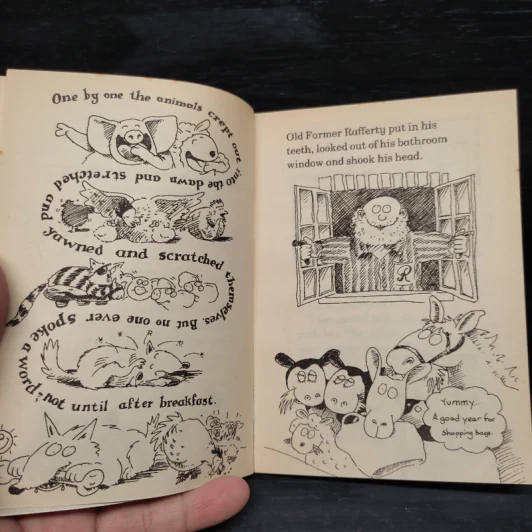 One by one the animals crept out
into the dawn and stretched
and
yawned and scratched
themselves. But no one ever spoke a word;
not until after breakfast.
Old Farmer Rafferty put in his
teeth, looked out of his bathroom
window and shook his head.
R
Yummy...
A good year for
shopping bags.